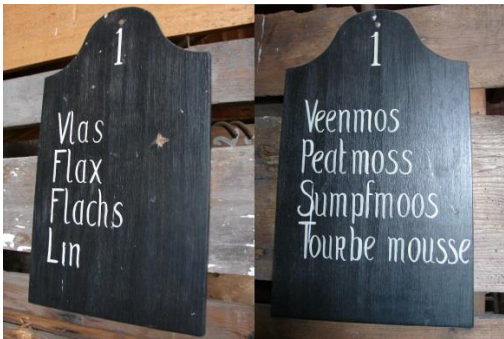 1
Vlas
Flax
Flachs
Lin
1
Veenmos
Peatmoss
Sumpfmoos
Tourbe mousse